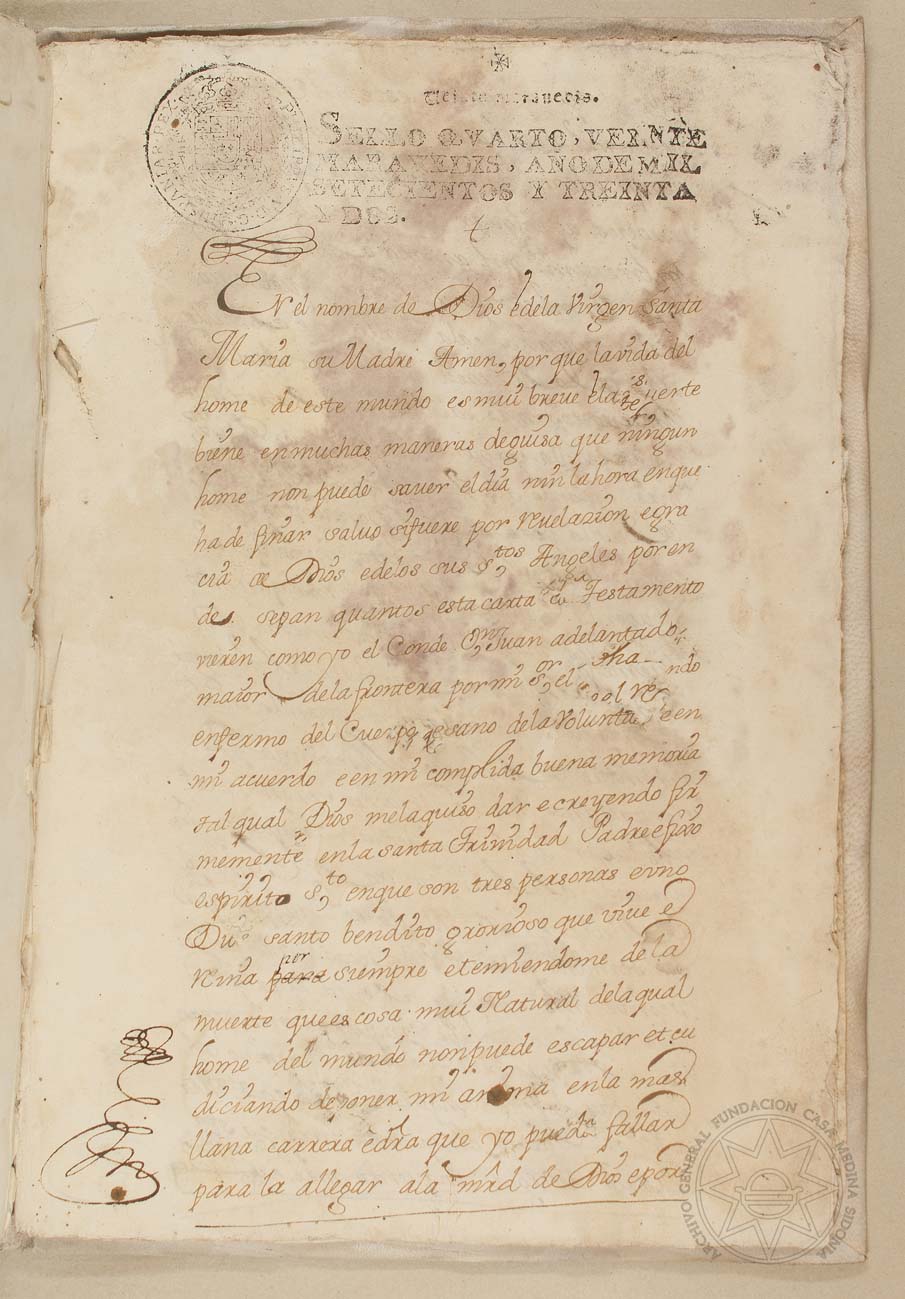 Veinte maravedis.
SELLO QVARTO, VEINTE
MARAVEDIS, AÑO DE MIL
SETECIENTOS Y TREINTA
Y DOS.
En el nombre de Dios e dela Virgen Santa
Maria su Madre Amen, por que la vida del
home de este mundo es mui breve e la muerte
biene en muchas maneras de guisa que ningun
home non puede saver el dia nin la hora en que
ha de finar salvo si fuere por revelazion e gra
cia de Dios e de los sus s.tos Angeles por en
de sepan quantos esta carta de Testamento
vieren como yo el Conde Dn Juan adelantado
maior de la frontera por mi s.or el
enfermo del Cuerpo e sano de la Voluntad e en
mi acuerdo e en mi complida buena memoria
tal qual Dios me la quiso dar e creyendo fir
memente en la santa Trinidad Padre e fixo
espirito s.to en que son tres personas e vno
Dios santo bendito grorioso que vive e
reina por siempre e temiendome de la
muerte que es cosa mui Natural de la qual
home del mundo non puede escapar et cu
diciando de poner mi anima en la mas
llana carrera que yo pueda fallar
para la allegar a la mrd de Dios e por
ARCHIVO GENERAL FUNDACION CASA MEDINA SIDONIA